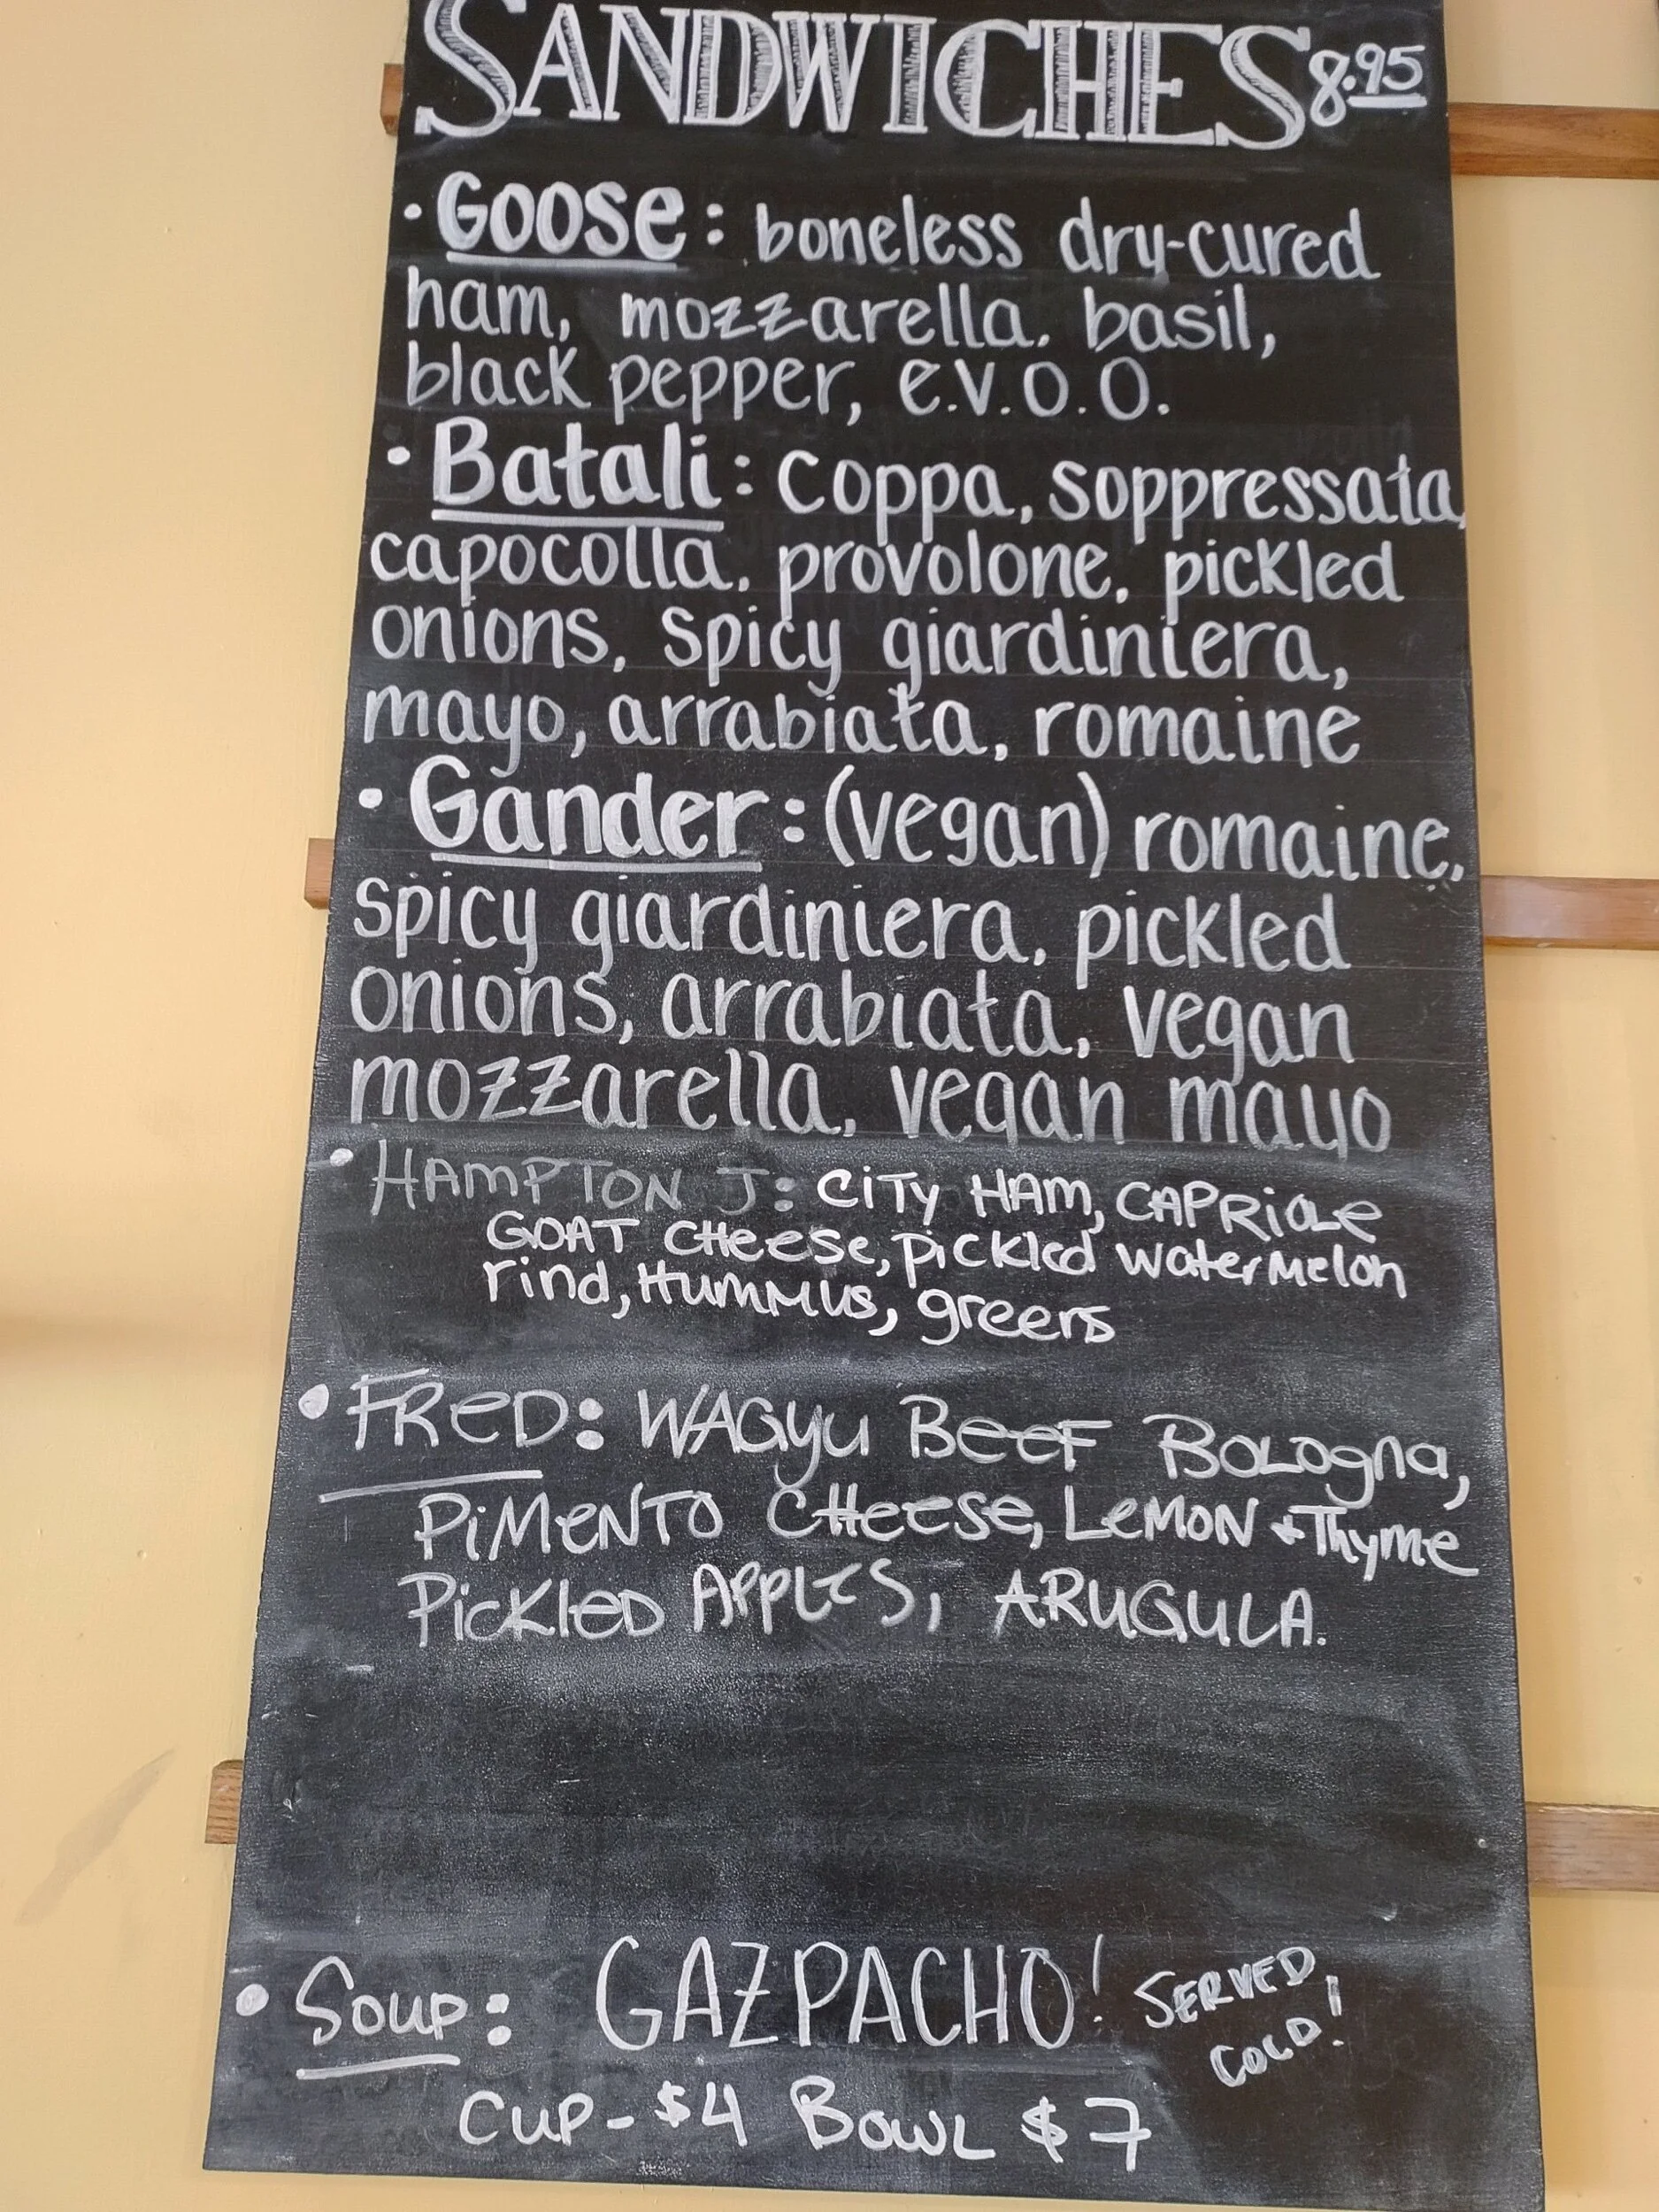 SANDWICHES 8.95
• Goose: boneless dry-cured
ham, mozzarella, basil,
black pepper, e.v.o.o.
• Batali: coppa, soppressata,
capocolla, provolone, pickled
onions, spicy giardiniera,
mayo, arrabiata, romaine
• Gander: (vegan) romaine,
spicy giardiniera, pickled
onions, arrabiata, vegan
mozzarella, vegan mayo
• HAMPTON J: CITY HAM, CAPRIOLE
GOAT CHeese, Pickled watermelon
rind, Hummus, greens
• FReD: WAGyu BeeF BoLogna,
PiMeNTO CHeese, LeMON + Thyme
PickleD APPLES, ARUGULA.
• Soup: GAZPACHO! SERVED
COLD!
CUP - $4 BowL $7